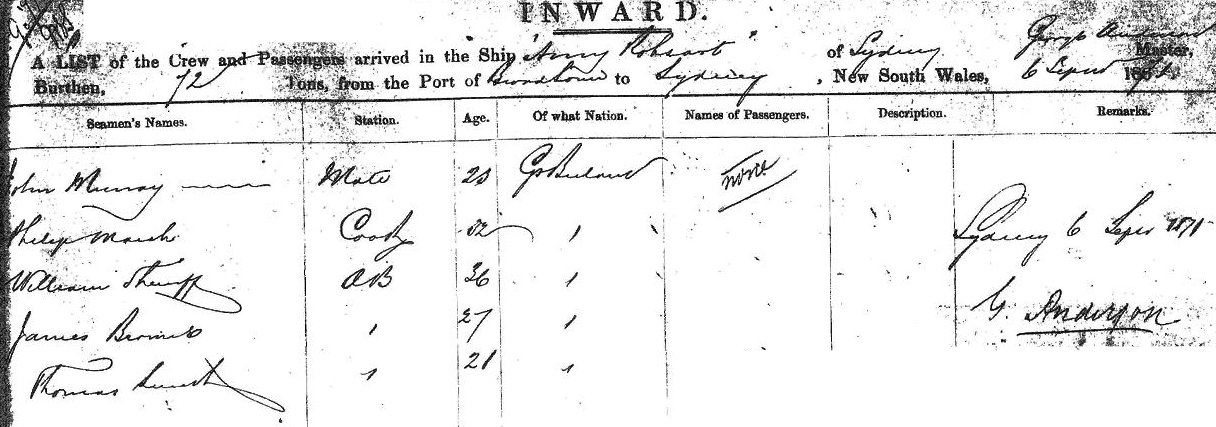 INWARD.
George Anderson
A LIST of the Crew and Passengers arrived in the Ship "Amy Robsart" of Sydney Master,
Burthen, 72 Tons, from the Port of to Sydney, New South Wales, 6 Sepr 1871
Seamen's Names. Station. Age. Of what Nation. Names of Passengers. Description. Remarks.
John Murray Mate 23 none
Philip Cook 32 "
Sydney 6 Sepr 1871
William AB 36 "
G. Anderson
James " 27 "
Thomas " 21 "